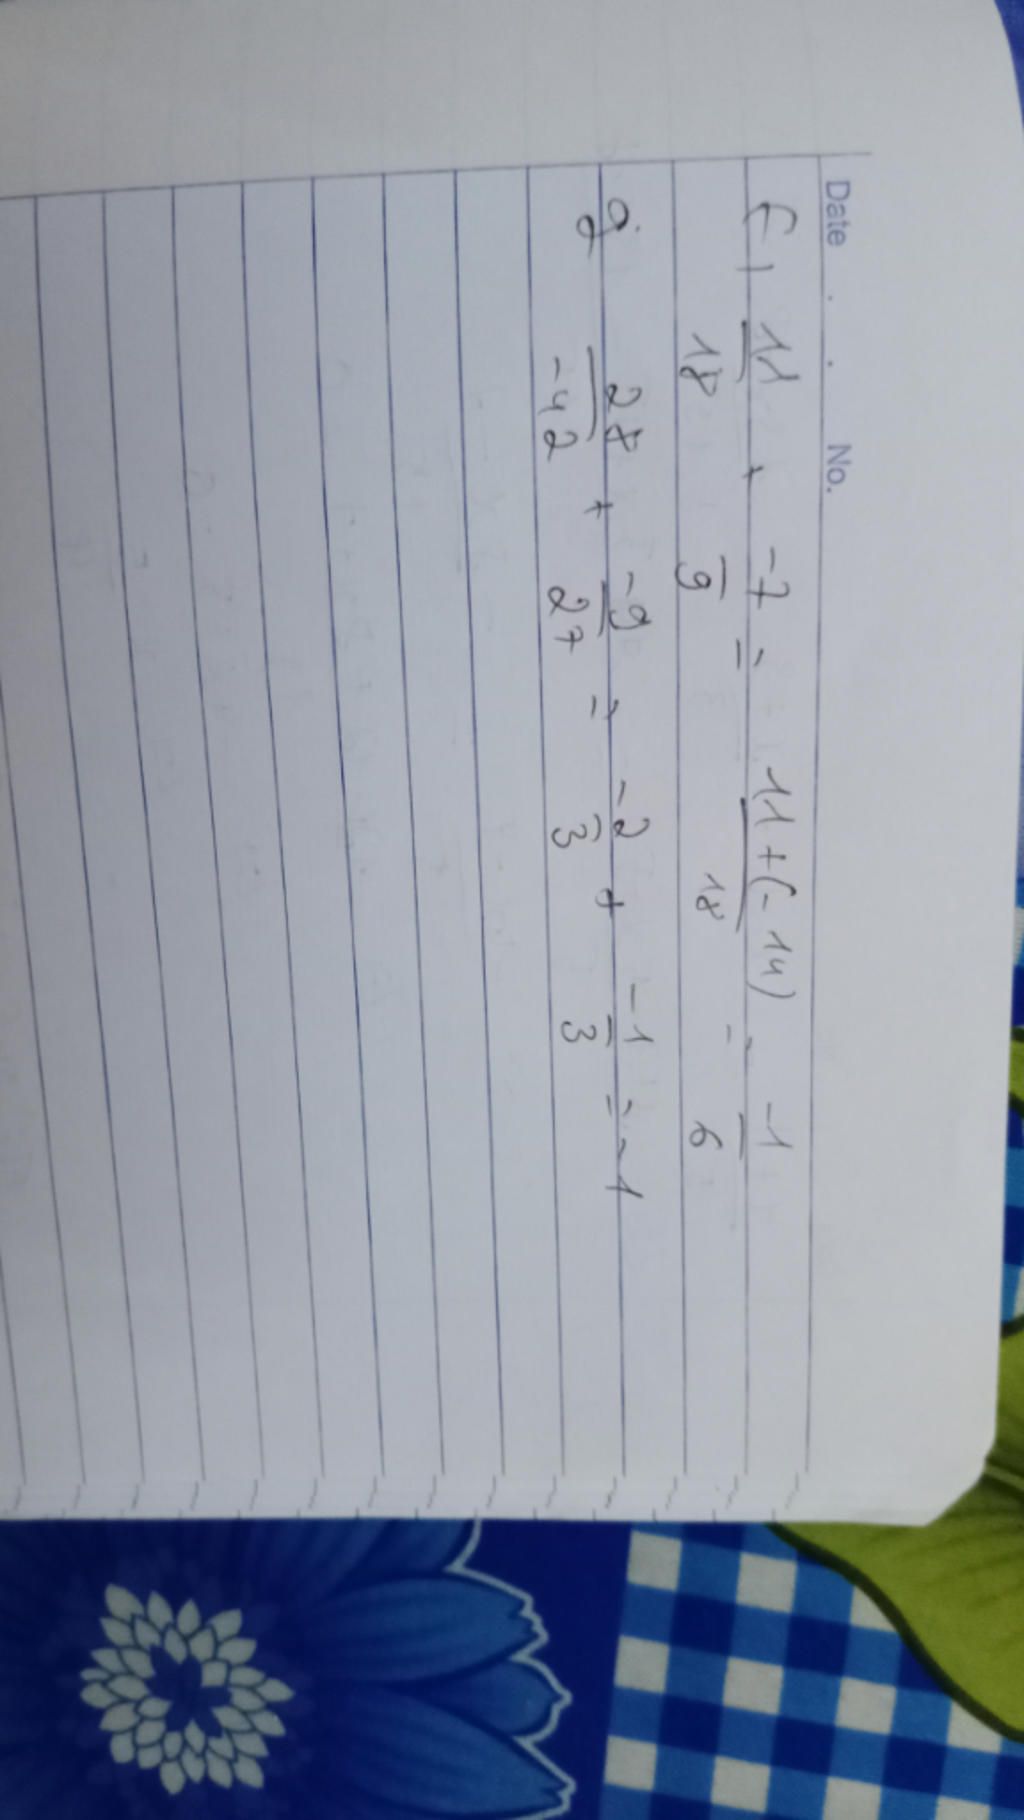 Date . . No.
f, 11/18 + -7/9 = 11+(-14)/18 = -1/6
g 28/-42 + -9/27 = -2/3 + -1/3 = -1